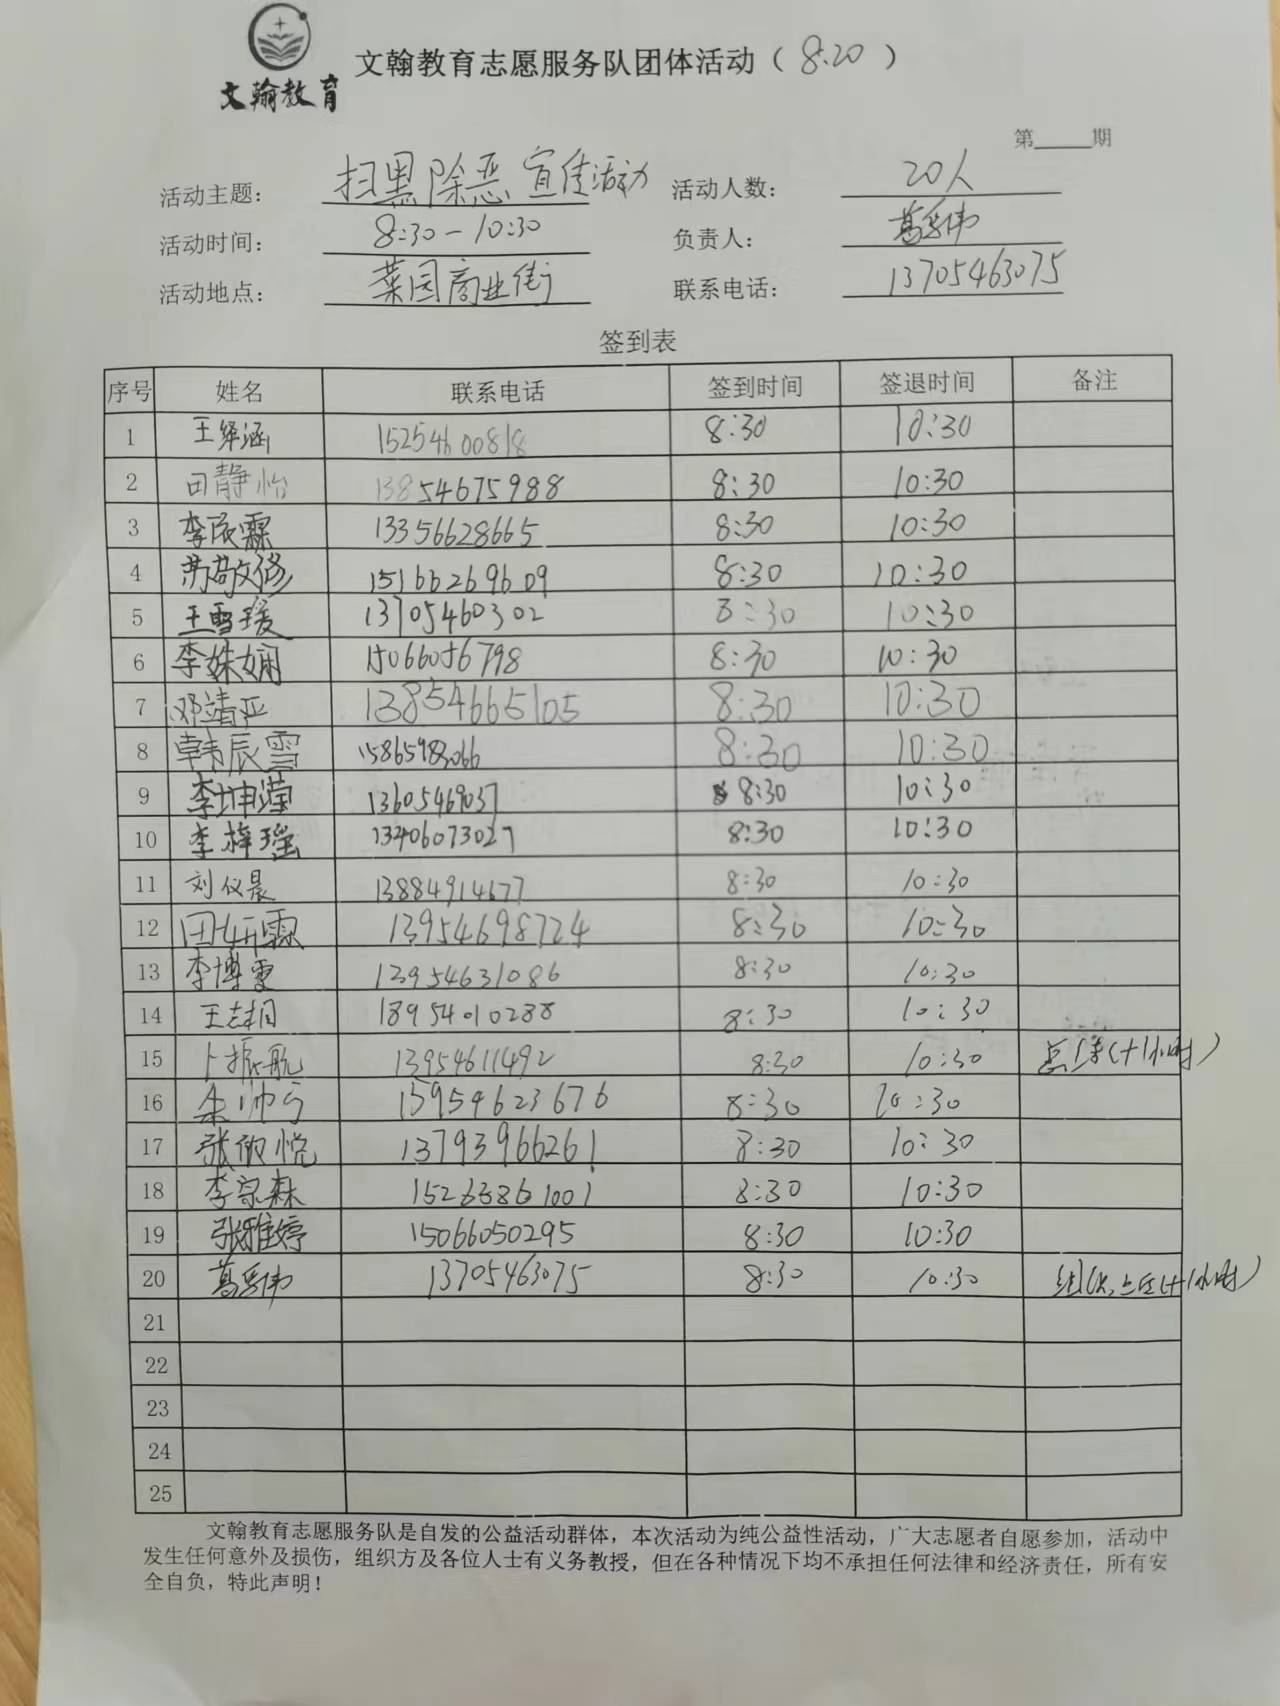 文翰教育
文翰教育志愿服务队团体活动（8.20）
第 期
活动主题： 扫黑除恶宣传活动 活动人数： 20人
活动时间： 8:30-10:30 负责人： 葛乐伟
活动地点： 菜园商业街 联系电话： 13705463075
签到表
序号 姓名 联系电话 签到时间 签退时间 备注
1 王绎涵 15254600818 8:30 10:30
2 田静怡 13854675988 8:30 10:30
3 李辰霖 13356628665 8:30 10:30
4 敬修 15166269609 8:30 10:30
5 王雪瑗 13705460302 8:30 10:30
6 李姝娴 15066056798 8:30 10:30
7 邓靖严 13854665105 8:30 10:30
8 韩辰雪 15865983066 8:30 10:30
9 李坤滢 13605469037 8:30 10:30
10 李梓瑶 13406073027 8:30 10:30
11 刘仪晨 13884914677 8:30 10:30
12 田妍霖 13954698724 8:30 10:30
13 李博雯 13954631086 8:30 10:30
14 王志相 18954010288 8:30 10:30
15 卜振航 13954611492 8:30 10:30 (+1小时)
16 朱帅 15954623676 8:30 10:30
17 张俶悦 13793966261 8:30 10:30
18 李宗森 15263861001 8:30 10:30
19 张雅婷 15066050295 8:30 10:30
20 葛乐伟 13705463075 8:30 10:30 (+1小时)
21
22
23
24
25
文翰教育志愿服务队是自发的公益活动群体，本次活动为纯公益性活动，广大志愿者自愿参加，活动中
发生任何意外及损伤，组织方及各位人士有义务教授，但在各种情况下均不承担任何法律和经济责任，所有安
全自负，特此声明！